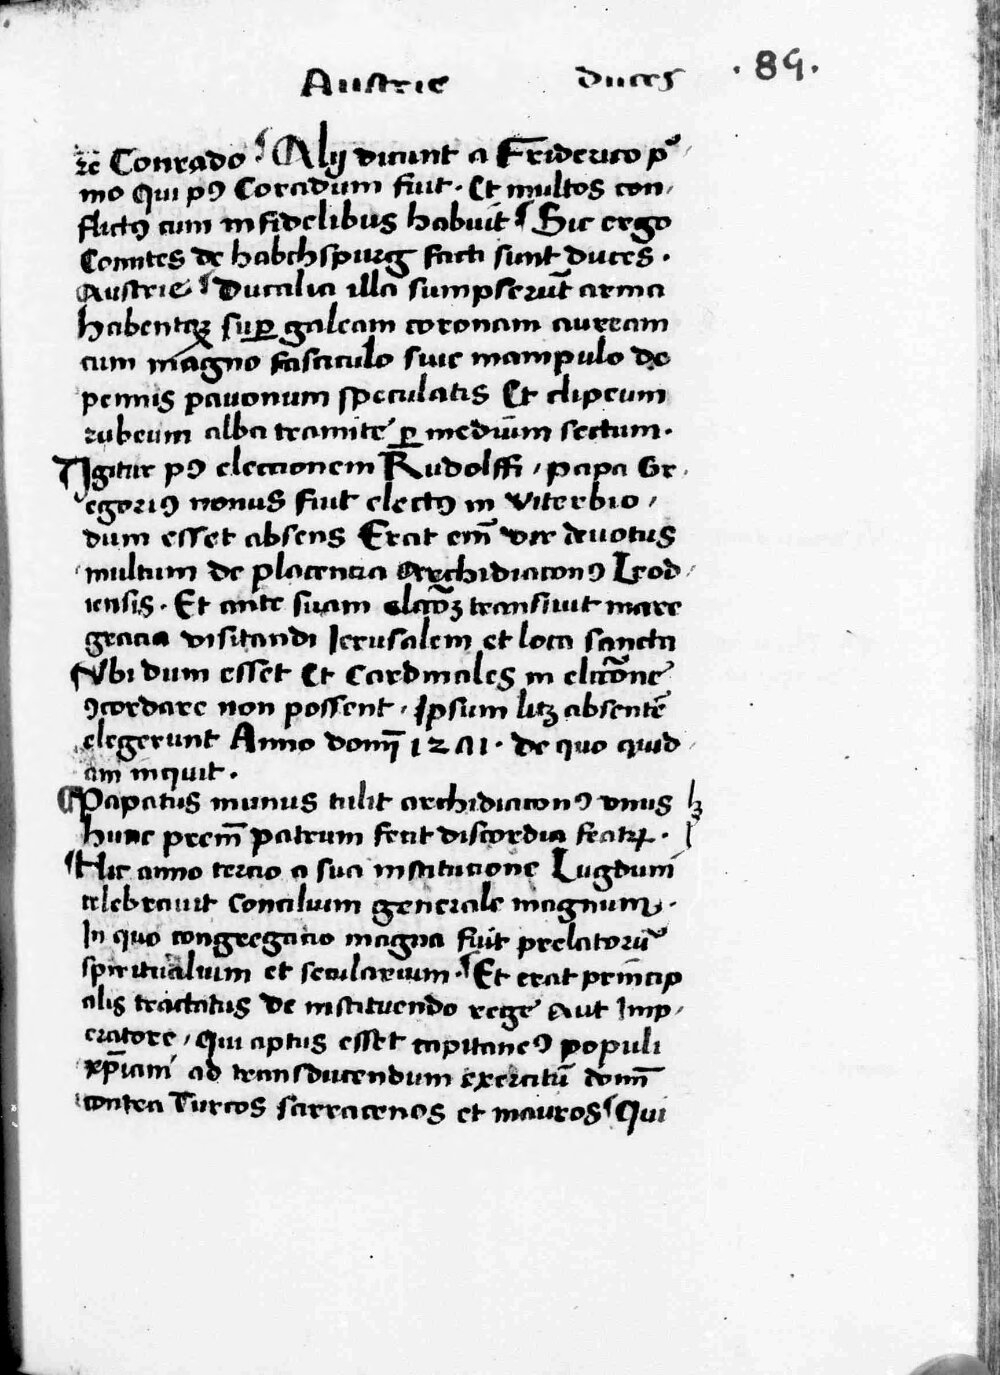 Austrie duces .89.
re Conrado Alij dicunt a Friderico p
mo Qui pꝰ Coradum fuit . Et multos con
flictꝰ cum infidelibus habuit Sic ergo
Comites de habchspurg facti sunt duces .
Austrie Ducalia illa sumpserūt arma
habentqꝫ suꝑ galeam coronam auream
cum magno fasciculo siue manipulo de
pennis pauonum speculatis Et clipeum
rubeum alba tramite ꝑ medium sectum .
Igitur pꝰ eleccionem Rudolffi / papa Gr
egoriꝰ nonus fuit electꝰ in viterbio /
dum esset absens Erat em̄ vir deuotus
multum de placencia Archidiaconꝰ Leod
iensis . Et ante suam elcōꝫ transiuit mare
gracia visitandi Ierusalem et loca sancta
Vbi dum esset Et Cardinales in elccōne
ꝯcordare non possent . Ipsum licꝫ absentē
elegerunt Anno domī 1271 . de quo quid
am inquit .
Papatus munus tulit archidiaconꝰ vnus
hunc prem̄ patrum fecit discordia fratꝝ .
Hic anno tercio a sua institucione Lugduni
celebrauit Concilium generale magnum .
In quo congregacio magna fuit prelatorū
spiritualium et secularium . Et erat princip
alis tractatus de instituendo rege Aut Imp
eratore / Qui aptus esset capitaneꝰ populi
xp̄iani ad transducendum exercitū domī
contra Turcos sarracenos et mauros Qui